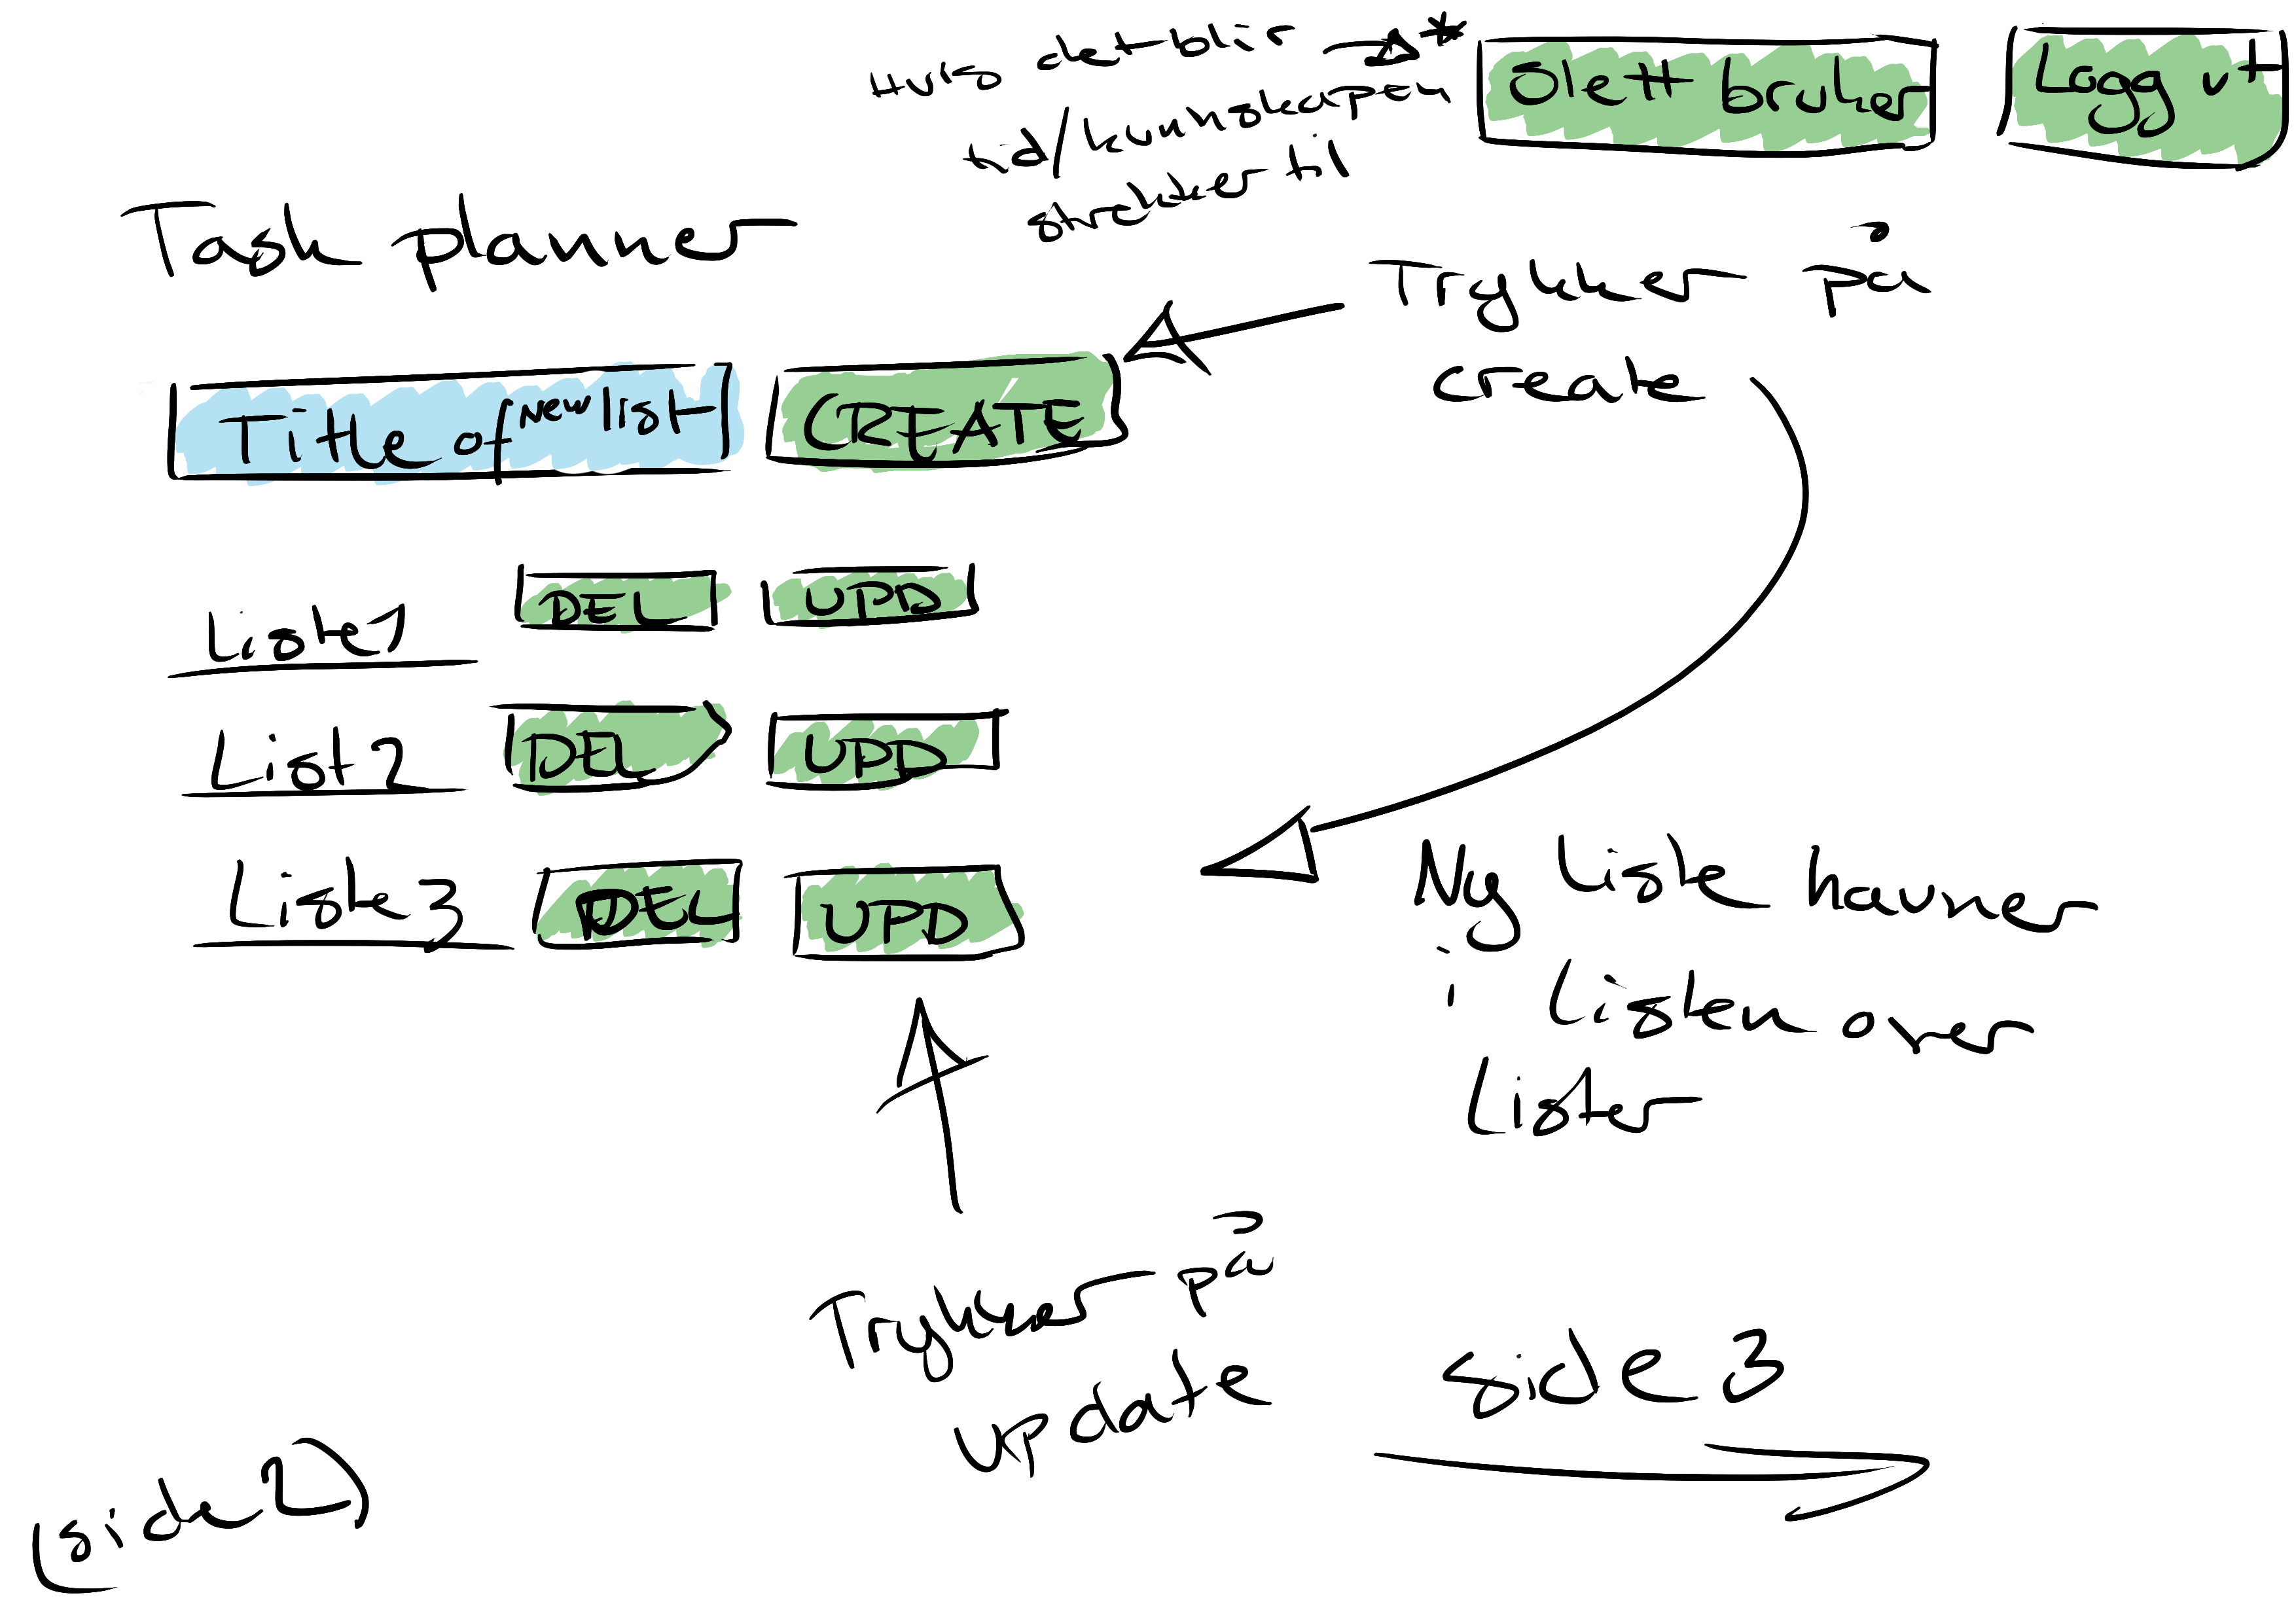 Hvis det blir
tid/kunnskapen
strekker til
*
Slett bruker
Logg ut
Task planner
Trykker på
create
Title of new list
CREATE
Liste 1
DEL
UPD
List 2
DEL
UPD
Liste 3
DEL
UPD
Ny liste havner
i listen over
lister
Trykker på
update
side 3
(side 2)